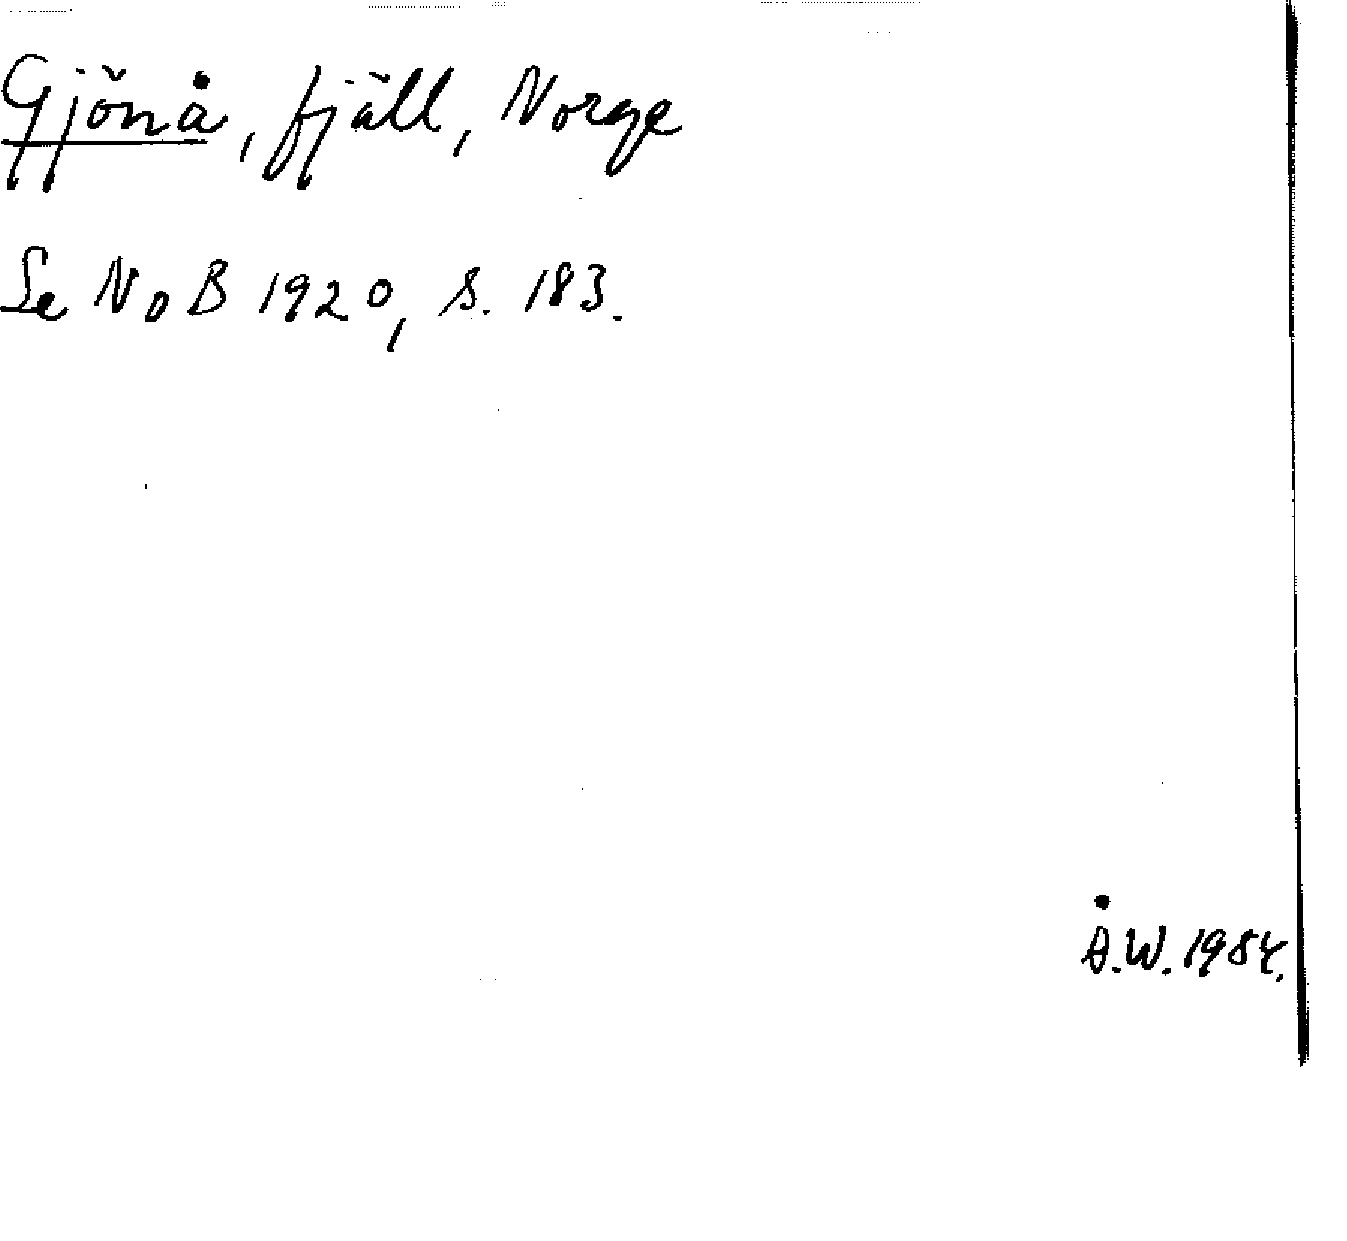 Gjönå, fjäll, Norge
Se NoB 1920, s. 183.
Å.W. 1984.